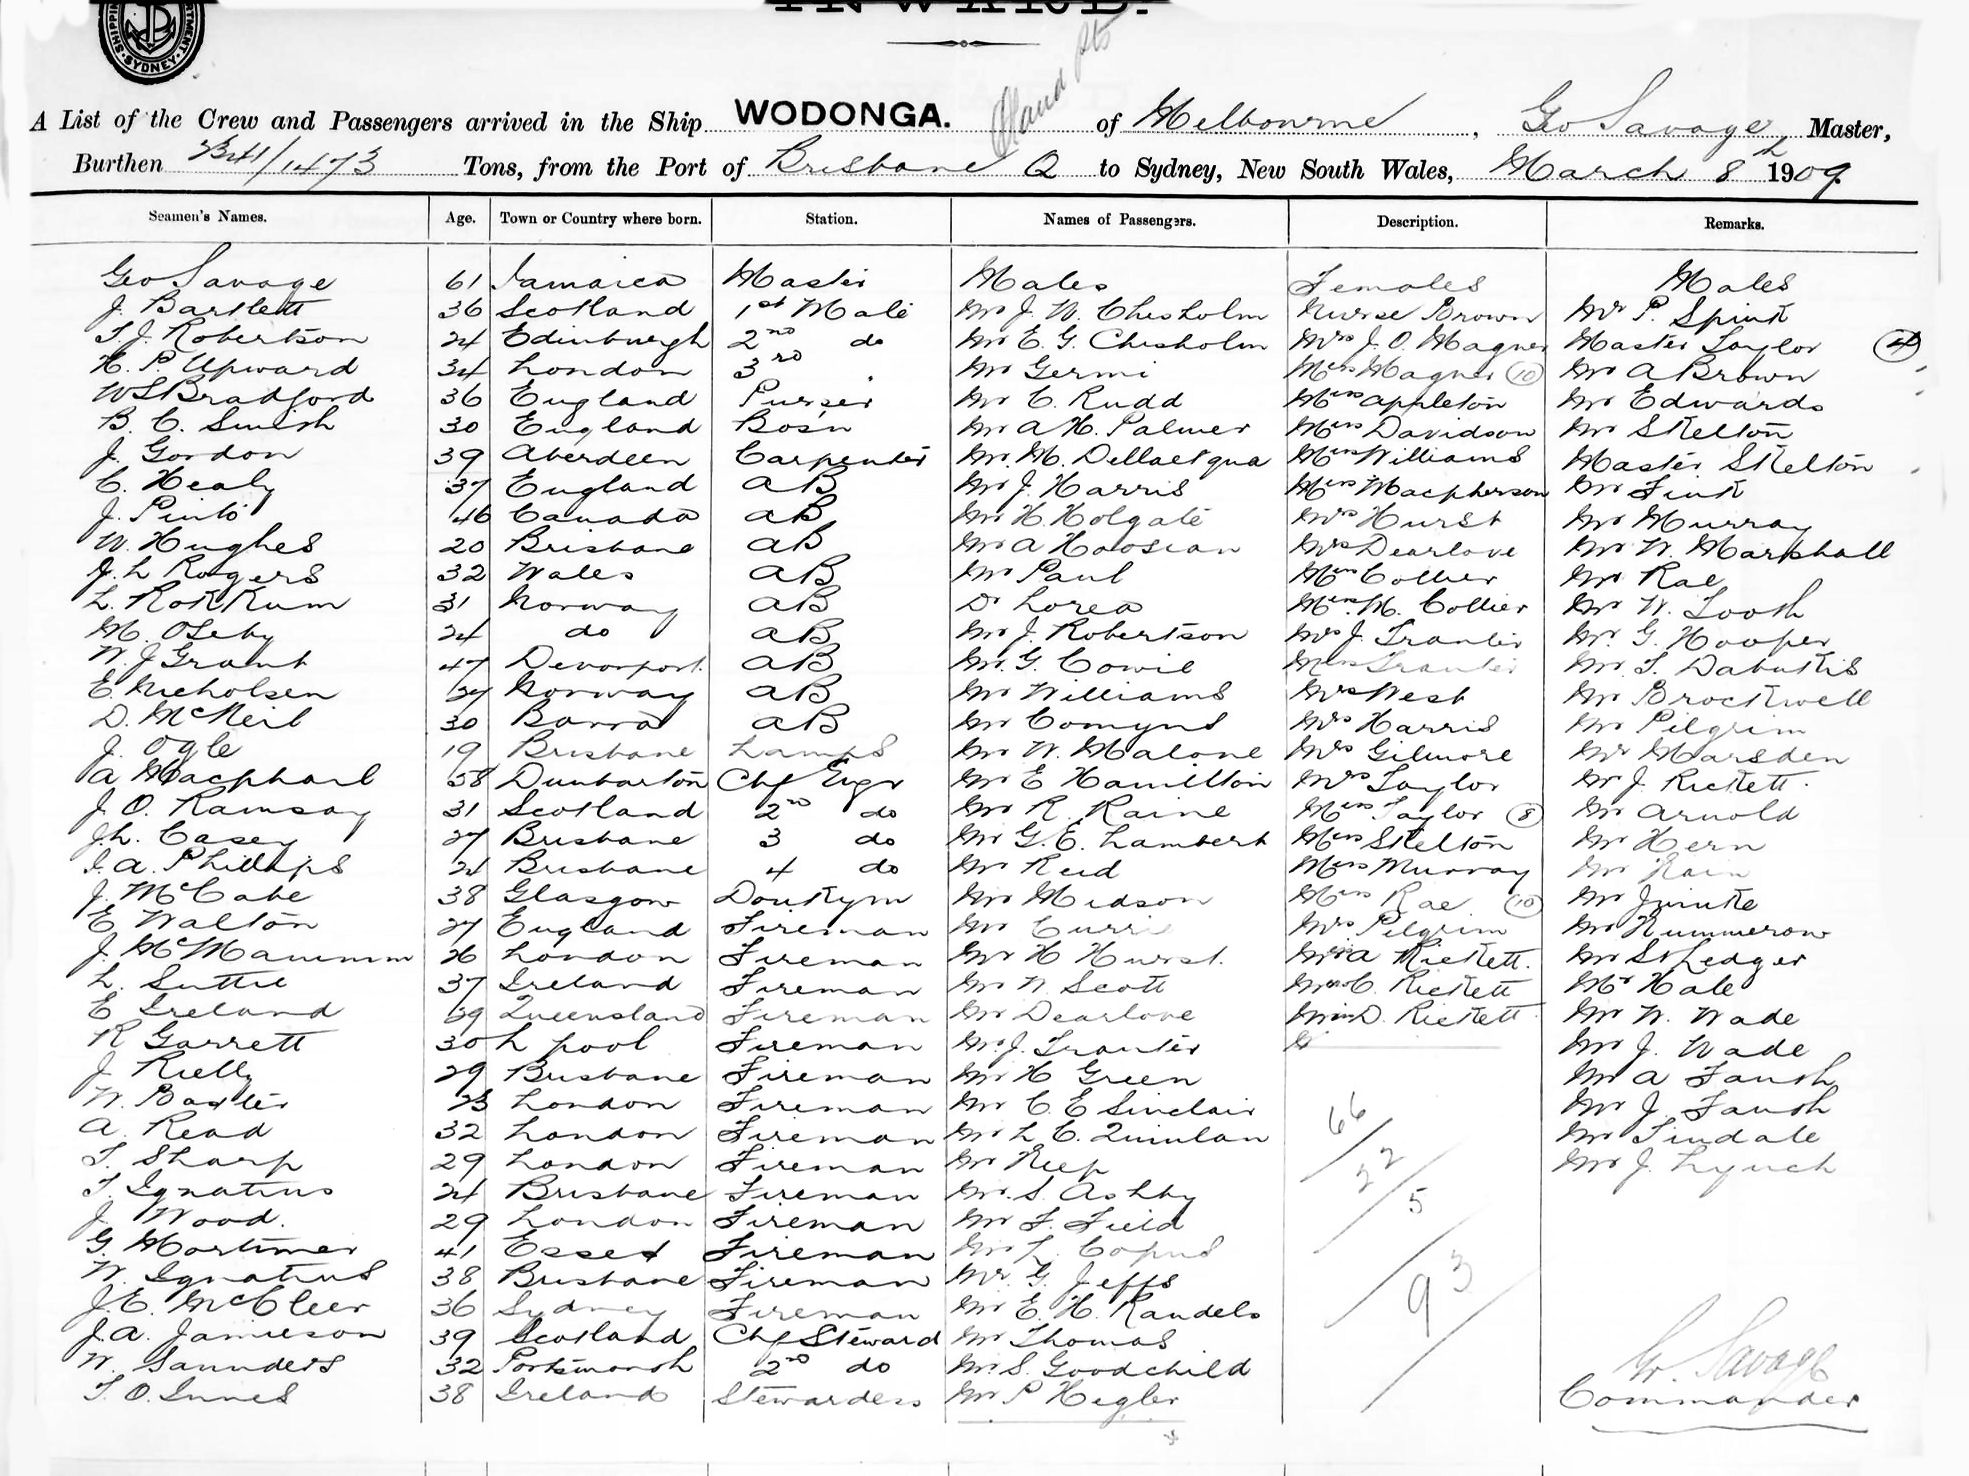 INWARD.
SHIPPING DEPARTMENT. SYDNEY
A List of the Crew and Passengers arrived in the Ship WODONGA. of Melbourne, Geo Savage, Master,
Burthen 1473 Tons, from the Port of Brisbane Q to Sydney, New South Wales, March 8th 1909.
Seamen's Names. Age. Town or Country where born. Station. Names of Passengers. Description. Remarks.
Geo Savage 61 Jamaica Master Males Females Males
J. Bartlett 36 Scotland 1st Mate Mr J. W. Chesholm Nurse Brown Mr P. Spink
T. J. Robertson 24 Edinburgh 2nd do Mr E. G. Chesholm Mrs J. O. Magner Master Taylor 4
H. P. Upward 34 London 3rd Mr Germi Miss Magner 10 Mr A Brown
W S Bradford 36 England Purser Mr C. Rudd Miss Appleton Mr Edwards
B. C. Smish 30 England Bosn Mr A H. Palmer Miss Davidson Mr Skelton
J. Gordon 39 Aberdeen Carpenter Mr M. Dellacqua Miss Williams Master Skelton
C. Healy 37 England AB Mr J. Harris Miss Macpherson Mr Fink
J. Pinto 46 Canada AB Mr H. Holgate Mrs Hurst Mr Murray
W. Hughes 20 Brisbane AB Mr A Hoosian Mrs Dearlove Mr W. Marshall
J. L Rogers 32 Wales AB Mr Paul Miss Collier Mr Rae
L. Rokkum 31 Norway AB Dr Lorea Miss M. Collier Mr W. Tooth
M. Oseby 24 do AB Mr J. Robertson Mrs J. Tranter Mr G. Hooper
W. J Grant 47 Devonport. AB Mr. G. Cowie Miss Tranter Mr T. Dabutkis
E. Nicholsen 27 Norway AB Mr Williams Mrs West Mr Brockwell
D. McNeil 30 Barra AB Mr Comyns Mrs Harris Mr Pilgrim
J. Ogle 19 Brisbane Lamps Mr W. Malone Mrs Gilmore Mr Marsden
A Macphail 58 Dunbarton Chf Engr Mr E Hamilton Mrs Taylor Mr J. Rickett.
J. O. Ramsay 31 Scotland 2nd do Mr R. Raine Miss Taylor 8 Mr Arnold
J. L. Casey 27 Brisbane 3 do Mr G. E. Lambert Miss Skelton Mr Hern
A. Phillips 21 Brisbane 4 do Mr Reid Miss Murray Mr Rain
J. McCabe 38 Glasgow Donkymn Mr Midson Miss Rae 10 Mr Juinke
E Walton 27 England Fireman Mr Currie Mrs Pilgrim Mr Kummerow
J. McManimm 26 London Fireman Mr H Hurst. Miss A Rickett. Mr St Ledger
L. Suttie 37 Ireland Fireman Mr N. Scott Miss C. Rickett Mr Hale
E Ireland 39 Queensland Fireman Mr Dearlove Miss D. Rickett Mr W. Wade
R Garrett 30 L pool Fireman Mr J. Tranter Mr J. Wade
J Rielly 29 Brisbane Fireman Mr H Green Mr A Faush
W. Baxter 23 London Fireman Mr C. E Sinclair 66 Mr J. Faush
A. Read 32 London Fireman Mr L C. Quinlan Mr Tindale
T. Sharp 29 London Fireman Mr Keep 22 Mr J. Lynch
T. Ignatius 24 Brisbane Fireman Mr. S. Ashby 5
J. Wood. 29 London Fireman Mr F. Field
G. Mortimer 41 Essex Fireman Mr L. Copus
W. Ignatius 38 Brisbane Fireman Mr. G. Jeffs 93
J. E. McCleer 36 Sydney Fireman Mr E. H. Randels
J. A. Jamieson 39 Scotland Chf Steward Mr Thomas
W. Saunders 32 Portsmouth 2nd do Mr. S. Goodchild G. Savage
T. O. Innes 38 Ireland Stewardess Mr P Hegler Commander